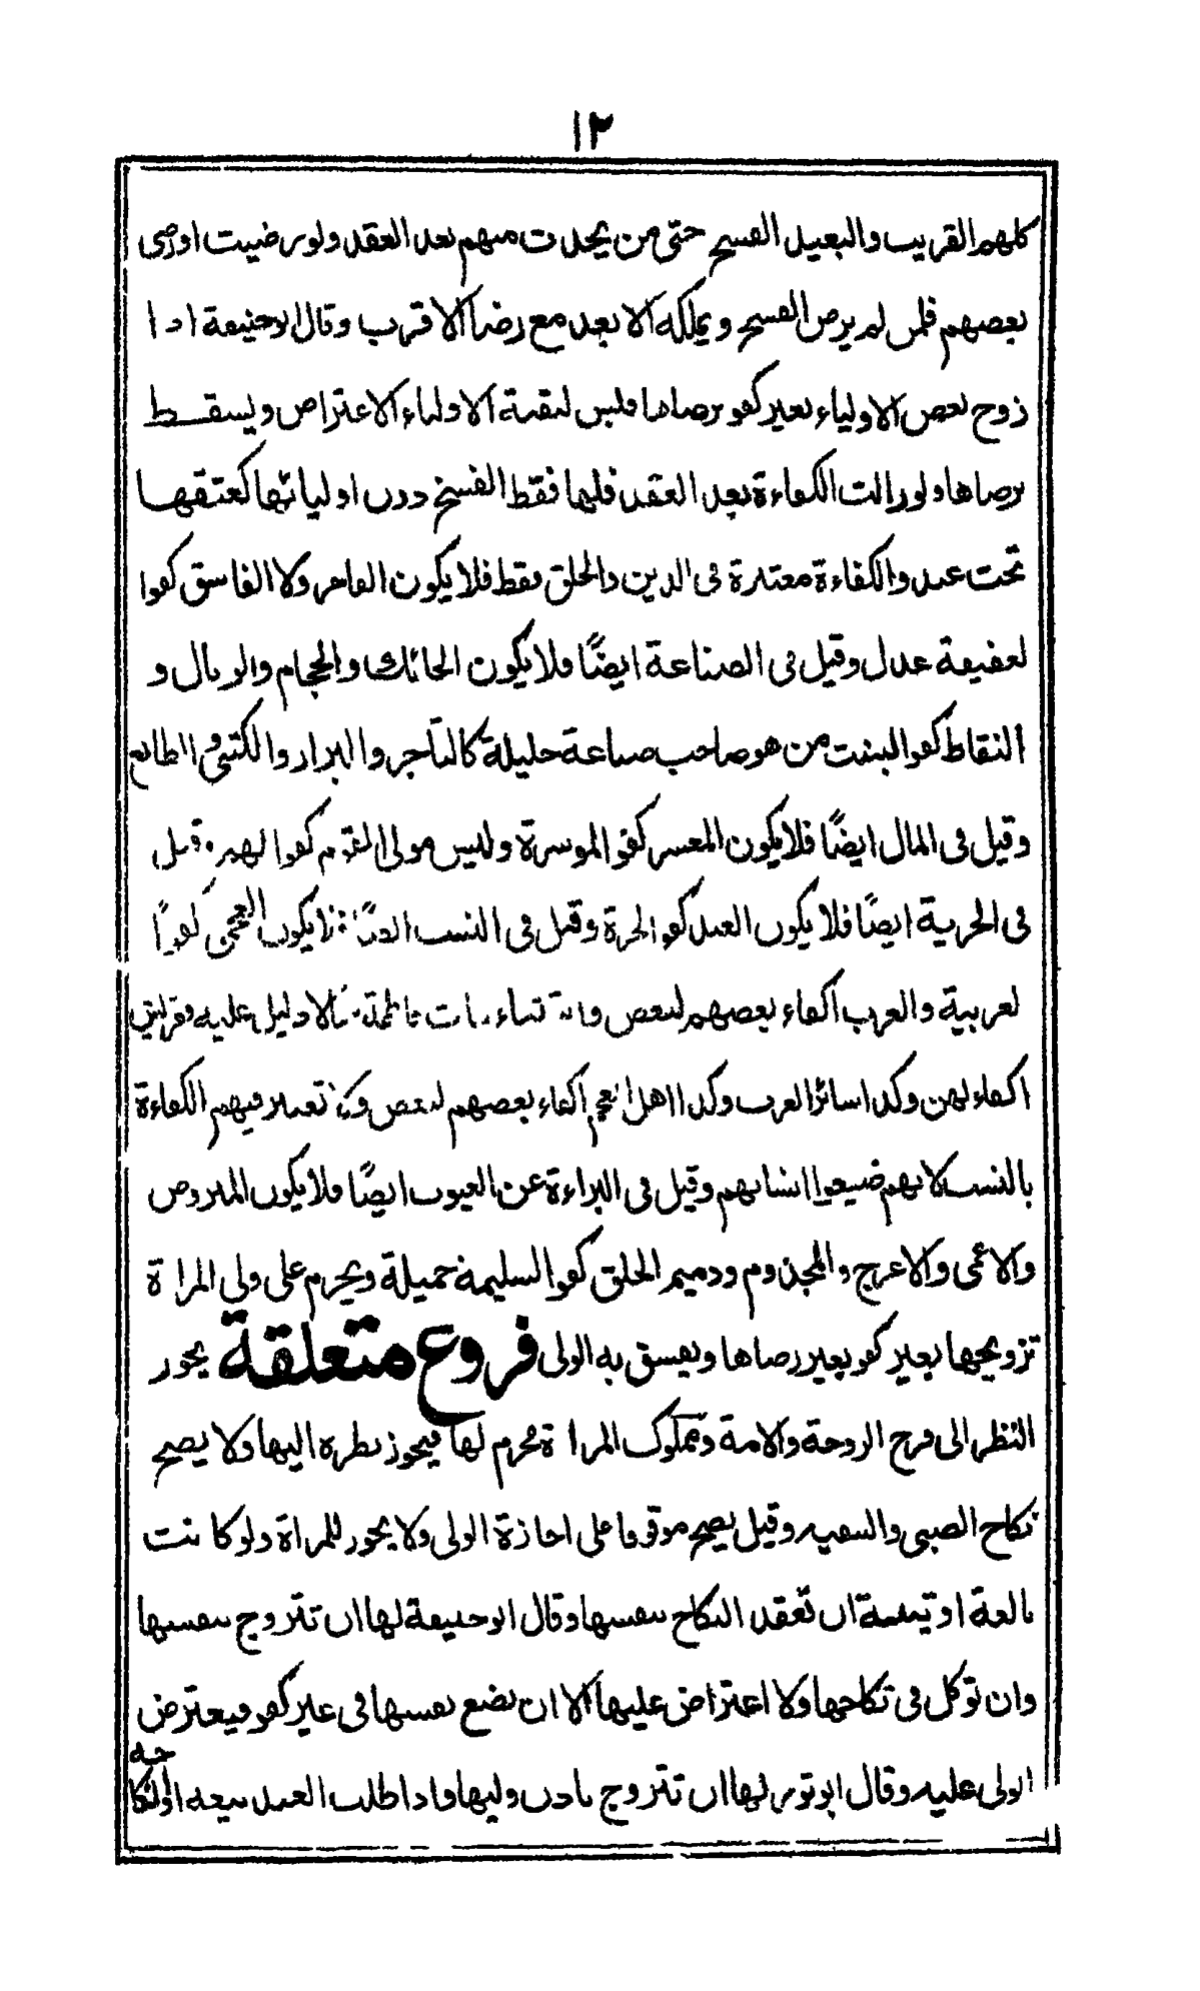 ١٢
كلهم القريب والبعيد الفسخ حتى من يحدث منهم بعد العقد ولو رضيت او رضى
بعضهم فلمن لم يرض الفسخ ويملكه الابعد مع رضا الاقرب وقال ابو حنيفة اذا
زوج بعض الاولياء بغير كفو برضاها فليس لبقية الاولياء الاعتراض ويسقط
برضاها ولو زالت الكفاءة بعد العقد فلها فقط الفسخ دون اوليائها كعتقها
تحت عبد والكفاءة معتبرة فى الدين والخلق فقط فلا يكون الفاجر ولا الفاسق كفوا
لعفيفة عدل وقيل فى الصناعة ايضًا فلا يكون الحائك والحجام والزبال و
النفاط كفو البنت من هو صاحب صناعة جليلة كالتاجر والبزاز والكتبي و الطابع
وقيل فى المال ايضًا فلا يكون المعسر كفو الموسرة وليس مولى القوم كفوا لهم وقيل
فى الحرية ايضًا فلا يكون العبد كفو الحرة وقيل فى النسب ايضًا فلا يكون العجمى كفوًا
لعربية والعرب اكفاء بعضهم لبعض فاطمة لا دليل عليه وقريش
اكفاء لهن وكذا سائر العرب وكذا اهل العجم اكفاء بعضهم لبعض تعتبر فيهم الكفاءة
بالنسب لانهم ضيعوا انسابهم وقيل فى البراءة عن العيوب ايضًا فلا يكون المبروص
والاعمى والاعرج والمجذوم ودميم الخلق كفو السليمة جميلة ويحرم على ولى المراة
تزويجها بغير كفو بغير رضاها ويفسق به الولى فروع متعلقة يجوز
النظر الى فرج الزوجة والامة ومملوك المراة محرم لها فيجوز نظره اليها ولا يصح
نكاح الصبى والسفيه وقيل يصح موقوفا على اجازة الولى ولا يجوز للمراة ولو كانت
بالغة او ثيبة ان تعقد النكاح بنفسها وقال ابو حنيفة لها ان تتزوج بنفسها
وان توكل فى نكاحها ولا اعتراض عليها الا ان تضع نفسها فى غير كفو فيعترض
الولى عليه وقال ابو ثور لها ان تتزوج باذن وليها واذا طلب العبد بيعه او انكا
حه